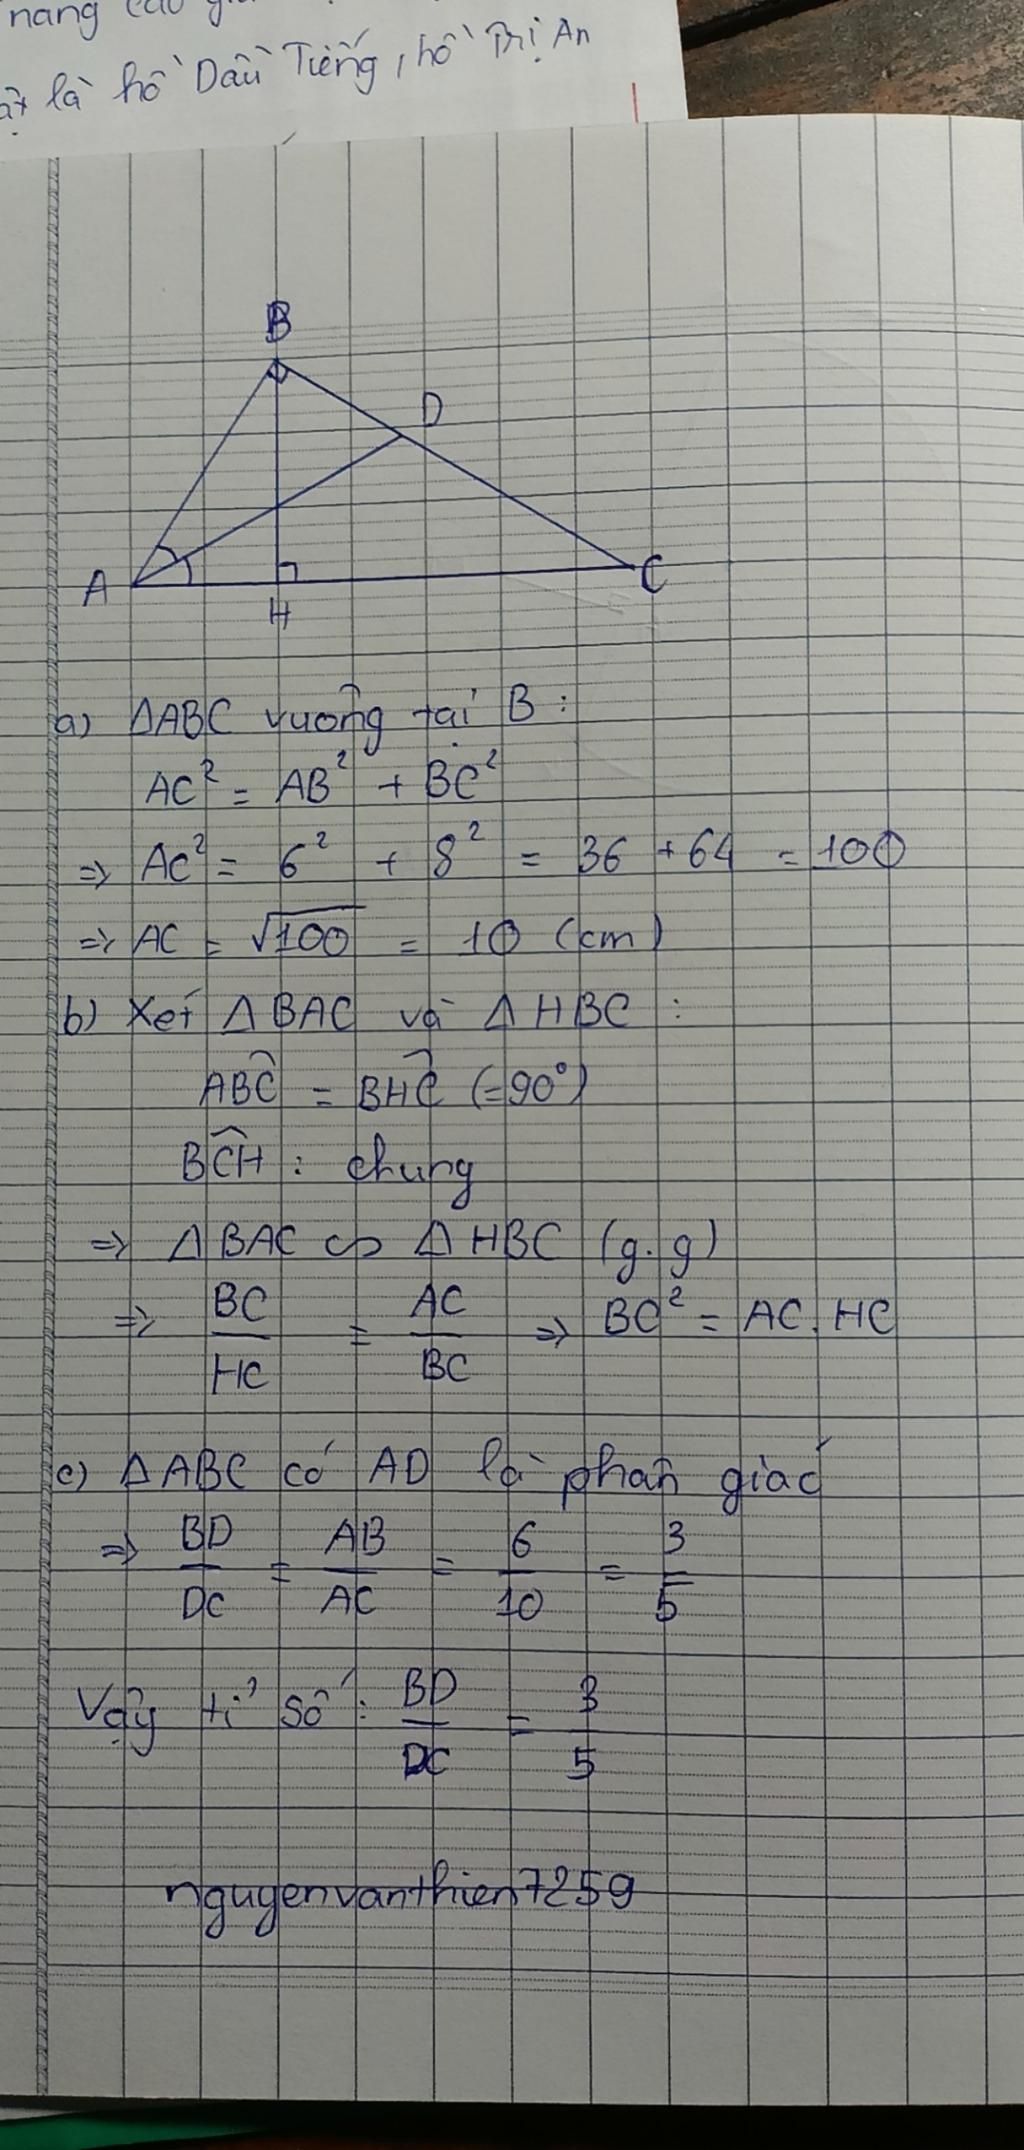 là hồ Dầu Tiếng, hồ Trị An
B
D
A
H
C
a) ΔABC vuông tại B :
AC² = AB² + BC²
=> AC² = 6² + 8² = 36 + 64 = 100
=> AC = √100 = 10 (cm)
b) Xét ΔBAC và ΔHBC :
ABĈ = BHĈ (=90°)
BĈH : chung
=> ΔBAC ∽ ΔHBC (g.g)
=> BC/HC = AC/BC => BC² = AC . HC
c) ΔABC có AD là phân giác
=> BD/DC = AB/AC = 6/10 = 3/5
Vậy tỉ số : BD/DC = 3/5
nguyenvanthien7259